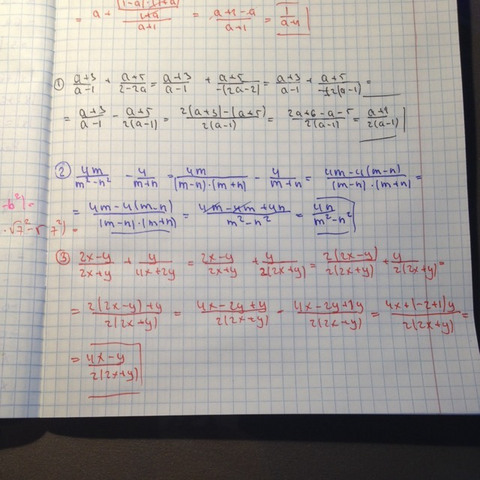 = a + (1-a)·(1+a) / (1+a) / (a+1) = (a+1-a)/(a+1) = 1/(a+1)
① (a+3)/(a-1) + (a+5)/(2-2a) = (a+3)/(a-1) + (a+5)/(-(2a-2)) = (a+3)/(a-1) + (a+5)/(-2(a-1)) =
= (a+3)/(a-1) - (a+5)/(2(a-1)) = (2(a+3)-(a+5))/(2(a-1)) = (2a+6-a-5)/(2(a-1)) = (a+1)/(2(a-1))
② 4m/(m²-n²) - 4/(m+n) = 4m/((m-n)·(m+n)) - 4/(m+n) = (4m-4(m-n))/((m-n)·(m+n)) =
= (4m-4(m-n))/((m-n)·(m+n)) = (4m-4m+4n)/(m²-n²) = 4n/(m²-n²)
③ (2x-y)/(2x+y) + y/(4x+2y) = (2x-y)/(2x+y) + y/(2(2x+y)) = 2(2x-y)/(2(2x+y)) + y/(2(2x+y)) =
= (2(2x-y)+y)/(2(2x+y)) = (4x-2y+y)/(2(2x+y)) = (4x-2y+1y)/(2(2x+y)) = (4x+(-2+1)y)/(2(2x+y)) =
= (4x-y)/(2(2x+y))